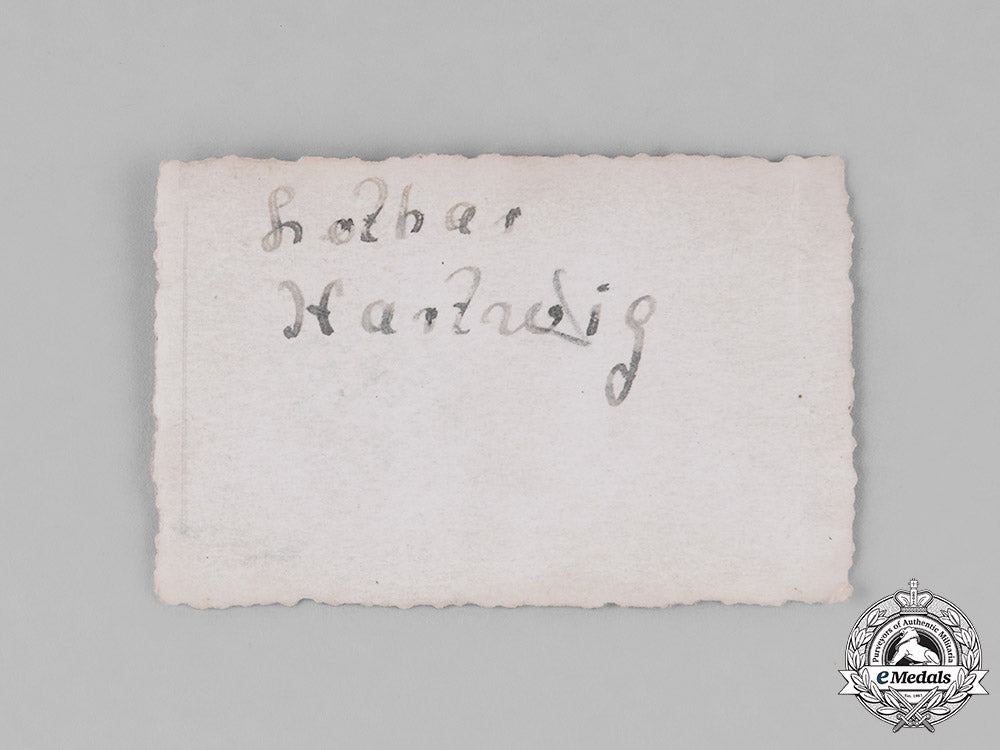 Lothar
Hartwig
Purveyors of Authentic Militaria
eMedals
Est. 1967